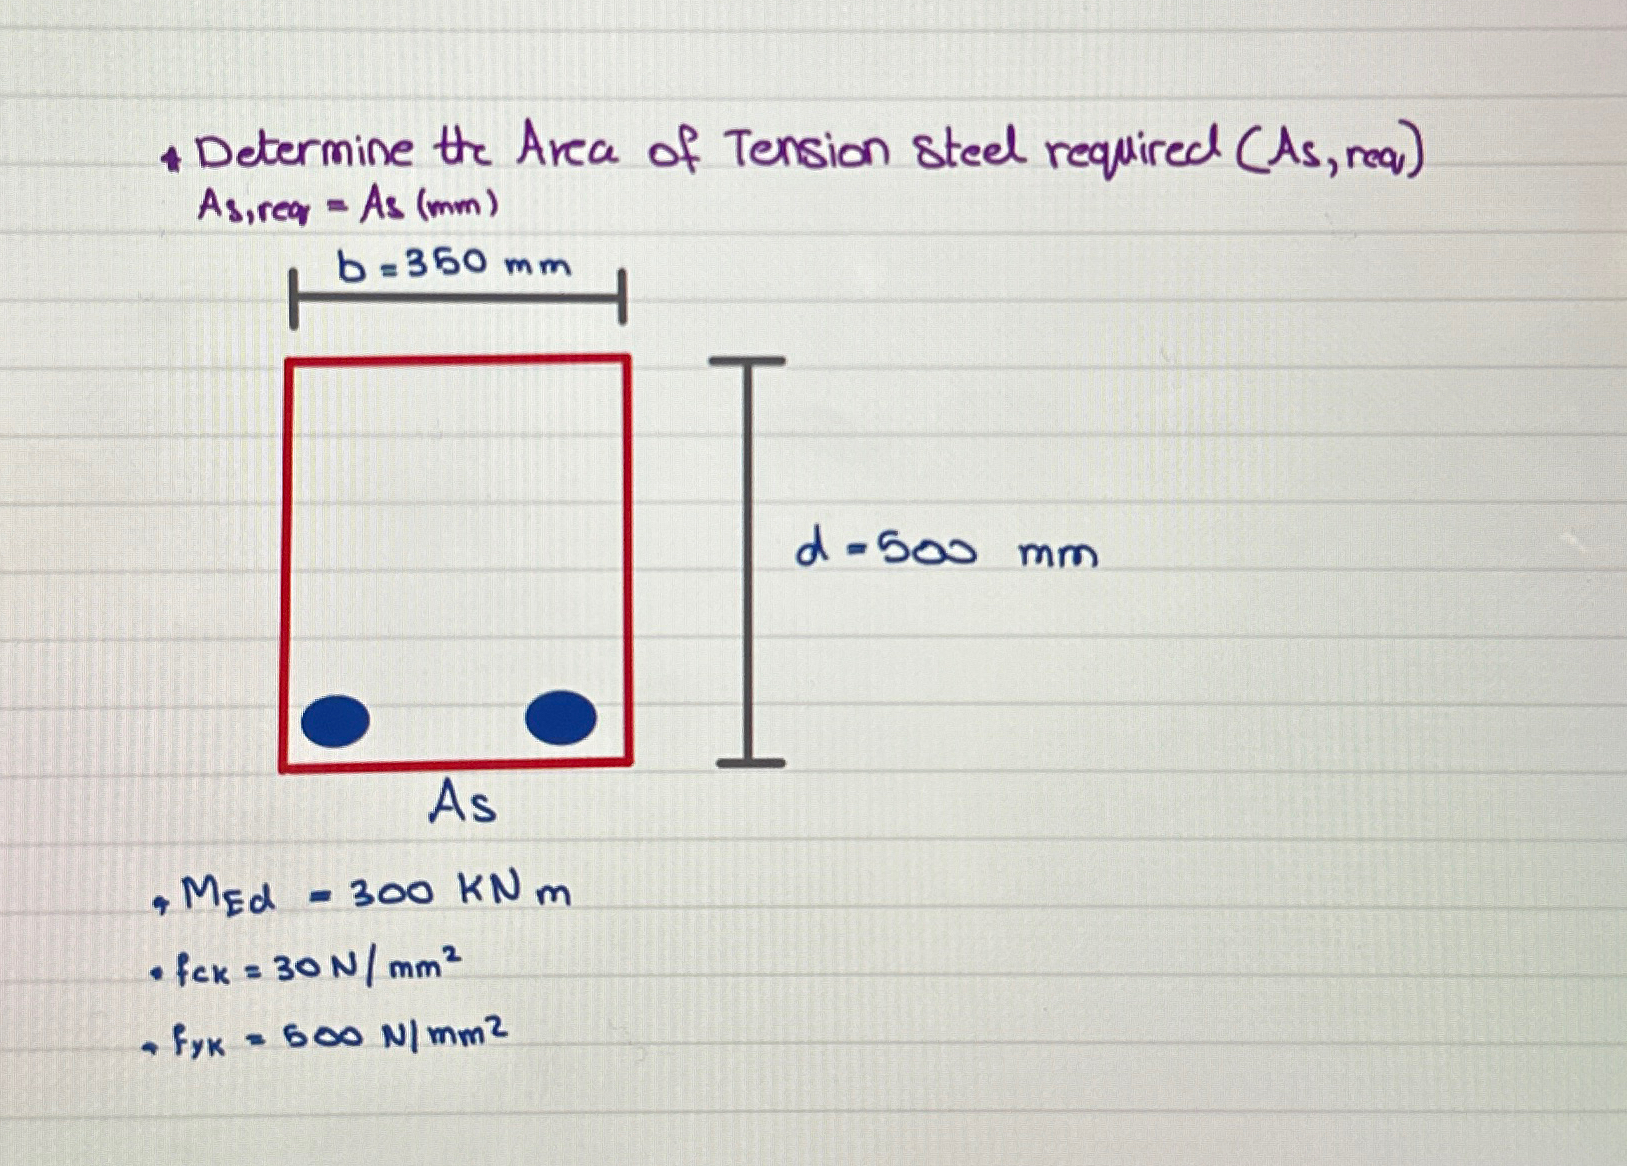 Determine the Area of Tension steel required (As,req)
As,req = As (mm)
b = 350 mm
d = 500 mm
As
MEd = 300 KN m
fck = 30 N/mm²
fyk = 500 N/mm²